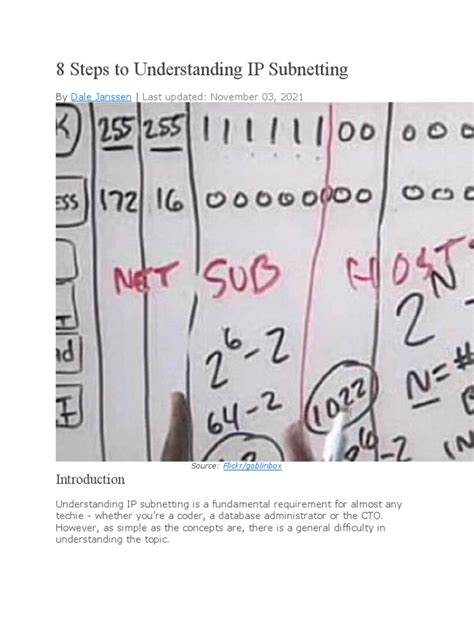 8 Steps to Understanding IP Subnetting
By Dale Janssen | Last updated: November 03, 2021
K 255 255 1 1 1 1 1 1 0 0 0 0 0
ESS 172 16 0 0 0 0 0 0 0 0 0 0 0
NET SUB HOST
2^6-2 2^N
64-2 1022 N=#
Source: Flickr/goblinbox
Introduction
Understanding IP subnetting is a fundamental requirement for almost any
techie - whether you're a coder, a database administrator or the CTO.
However, as simple as the concepts are, there is a general difficulty in
understanding the topic.